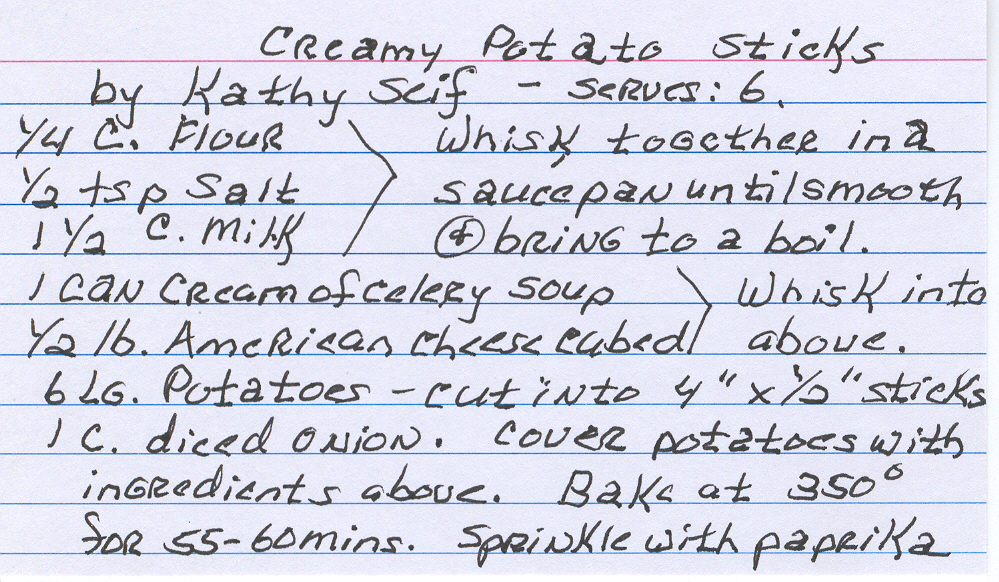 Creamy Potato Sticks
by Kathy Seif - serves: 6.
1/4 C. Flour > Whisk together in a
1/2 tsp Salt saucepan until smooth
1 1/2 C. Milk + bring to a boil.
1 can Cream of celery soup > Whisk into
1/2 lb. American cheese cubed above.
6 LG. Potatoes - cut into 4" x 1/2" sticks
1 C. diced onion. Cover potatoes with
ingredients above. Bake at 350°
for 55-60 mins. Sprinkle with paprika